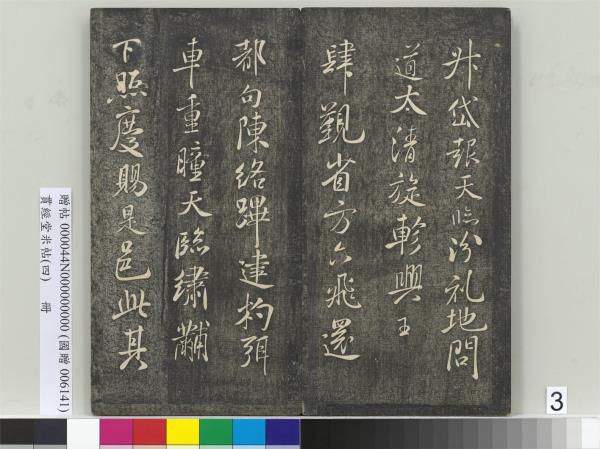 升岱報天臨汾禮地問
道太清旋軫興王
肆覲省方六飛還
都句陳絡蹕建杓弭
車重瞳天臨繡黼
下照慶賜是邑此其
贈帖 000044N000000000 (國贈 006141)
貫經堂米帖(四) 冊
3